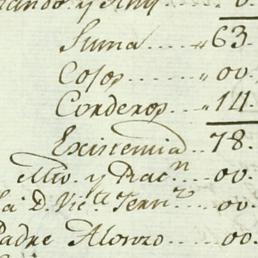 Suma......." 63.
Cosos....." 00.
Corderos..." 14.
Existencia 78.
Mto. y Racn.... 00.
D. Victe Ferrz... 00.
Padre Alonzo..... 00.